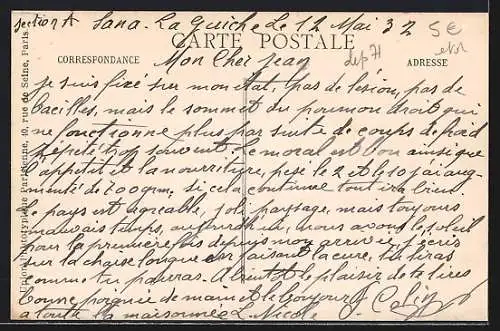 section A Sana. La Guiche Le 12 Mai 32
5€
CARTE POSTALE
dep 71
CORRESPONDANCE
ADRESSE
Mon Cher Jean
Je suis fixé sur mon état, pas de lésion, pas de
bacilles, mais le sommet du poumon droit qui
ne fonctionne plus par suite de coups de froid
répétés trop souvent. Le moral est bon ainsi que
l'appétit et la nourriture, pesé le 2 et le 10 j'ai aug-
menté de 700 grm. si cela continue tout ira bien
le pays est agréable, joli paysage, mais toujours
mauvais temps, aujourd'hui, nous avons le soleil
pour la première fois depuis mon arrivée, j'écris
sur la chaise longue en faisant la cure, tu liras
comme tu pourras. A bientôt le plaisir de te lire
bonne poignée de main et le bonjour
à toute la maisonnée L. Nicole Colin
Union Phototypique Parisienne, 10, rue de Seine, Paris